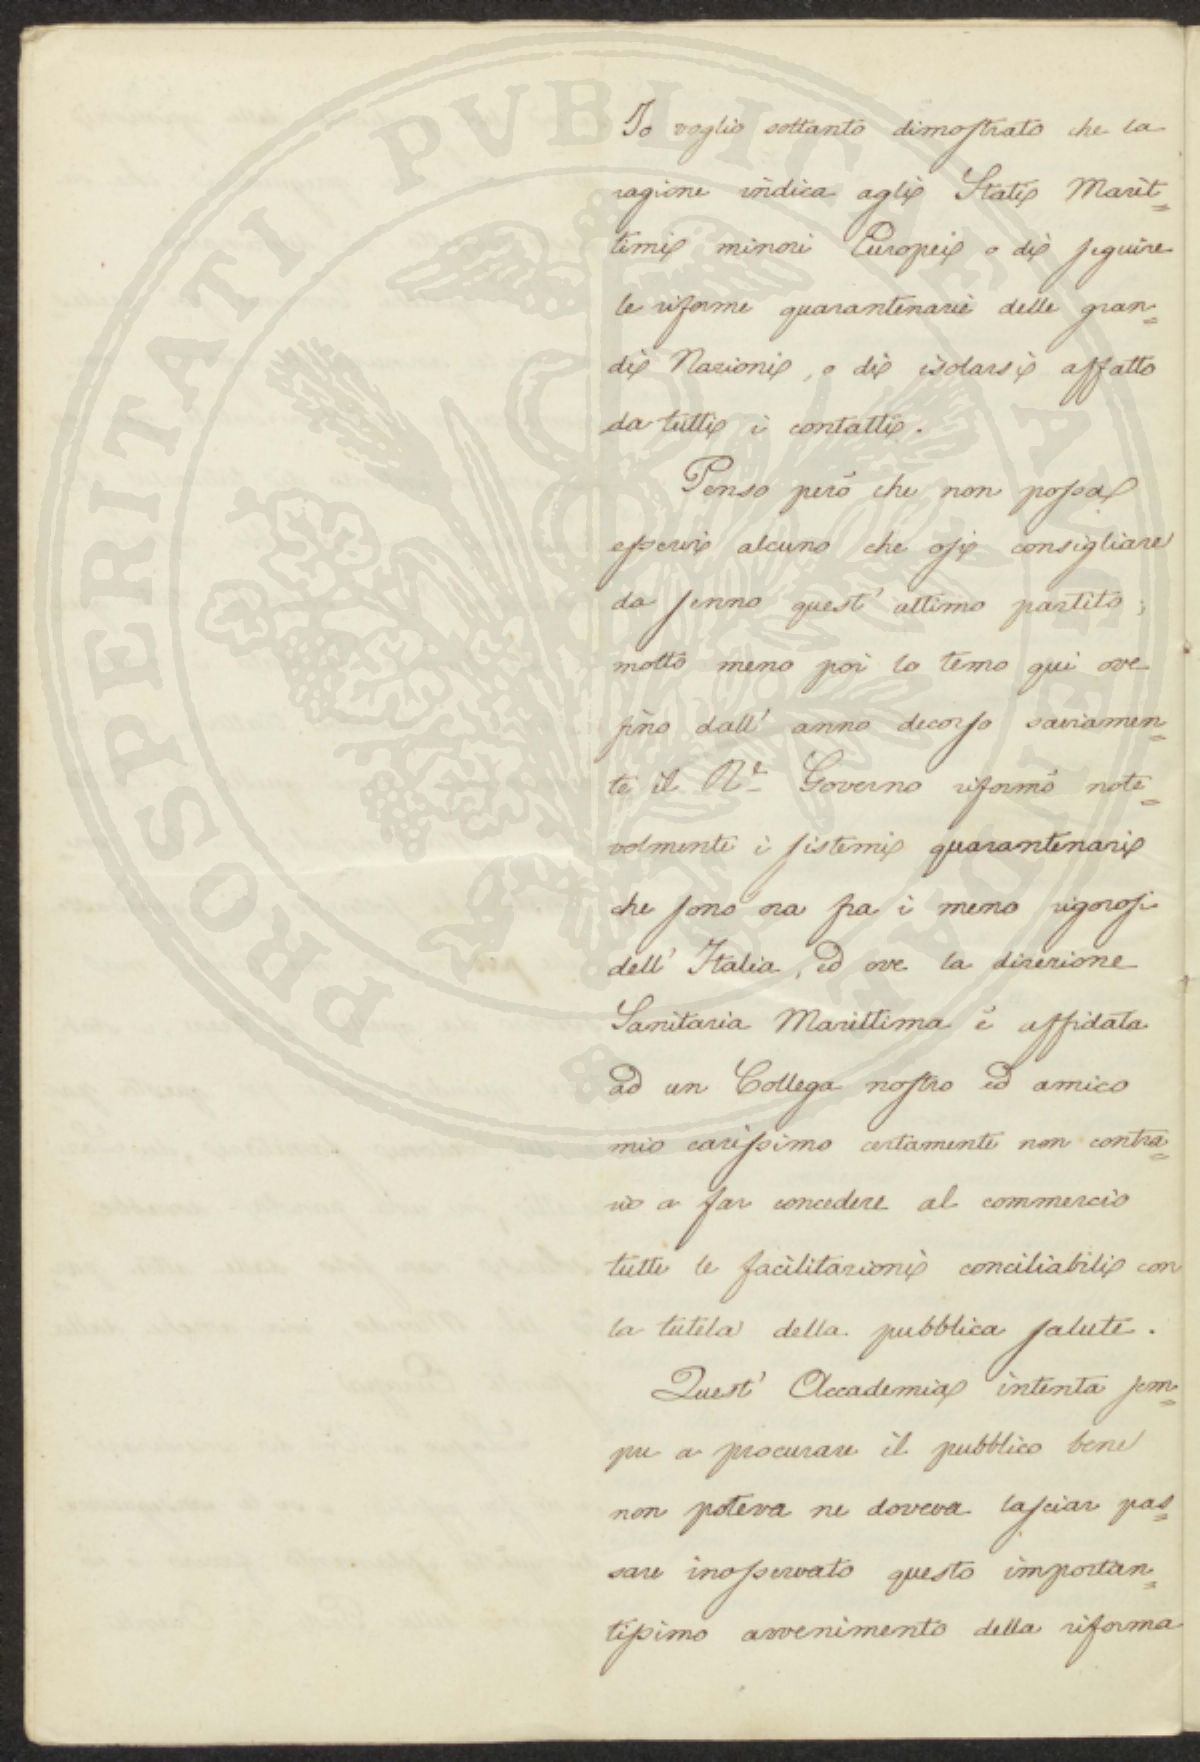 PROSPERITATI PVBLICAE AVGENDAE
Io voglio soltanto dimostrato che la
ragione indica agli Stati Marit=
timi minori Europei o di seguire
le riforme quarantenarie delle gran=
di Nazioni, o di isolarsi affatto
da tutti i contatti.
Penso però che non possa
esservi alcuno che osi consigliare
da senno quest' ultimo partito;
molto meno poi lo temo qui ove
fino dall' anno decorso saviamen=
te il R.º Governo riformò note=
volmente i sistemi quarantenari
che sono ora fra i meno rigorosi
dell' Italia, ed ove la direzione
Sanitaria Marittima è affidata
ad un Collega nostro ed amico
mio carissimo certamente non contra=
rio a far concedere al commercio
tutte le facilitazioni conciliabili con
la tutela della pubblica salute.
Quest' Accademia intenta sem=
pre a procurare il pubblico bene
non poteva ne doveva lasciar pas=
sare inosservato questo importan=
tissimo avvenimento della riforma